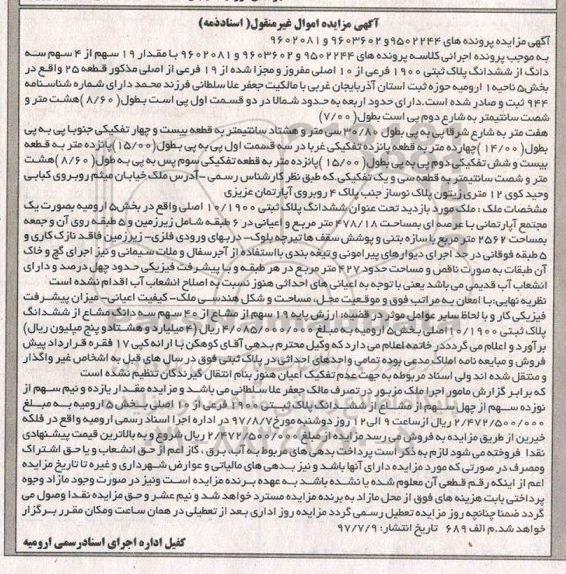 آگهی مزایده اموال غیرمنقول( اسنادذمه)
آگهی مزایده پرونده های ۹۵۰۲۲۴۴ و ۹۶۰۳۶۰۲ و ۹۶۰۲۰۸۱
به موجب پرونده اجرائی کلاسه پرونده های ۹۵۰۲۲۴۴ و ۹۶۰۳۶۰۲ و ۹۶۰۲۰۸۱ با مقدار ۱۹ سهم از ۴ سهم سه
دانگ از ششدانگ پلاک ثبتی ۱۹۰۰ فرعی از ۱۰ اصلی مفروز و مجزا شده از ۱۹ فرعی از اصلی مذکور قطعه ۲۵ واقع در
بخش۵ ناحیه۱ ارومیه حوزه ثبت استان آذربایجان غربی با مالکیت جعفر علا سلطانی فرزند محمد دارای شماره شناسنامه
۹۴۴ ثبت و صادر شده است.دارای حدود اربعه به حدود شمالا در دو قسمت اول پی است بطول( ۸/۶۰ )هشت متر و
شصت سانتیمتر به شارع دوم پی است بطول (۷/۰۰)
هفت متر به شارع شرقا پی به پی بطول ۳۰/۸۰ سی متر و هشتاد سانتیمتر به قطعه بیست و چهار تفکیکی جنوبا پی به پی
بطول (۱۴/۰۰ )چهارده متر به قطعه پانزده تفکیکی غربا در سه قسمت اول پی به پی بطول(۱۵/۰۰) پانزده متر به قطعه
بیست و شش تفکیکی دوم پی به پی بطول (۱۵/۰۰) پانزده متر به قطعه تفکیکی سوم پس به پی به بطول ( ۸/۶۰ )هشت
متر و شصت سانتیمتر به قطعه سی و یک تفکیکی.که طبق نظر کارشناس رسمی -آدرس ملک خیابان میثم روبروی کبابی
وحید کوی ۱۲ متری زیتون پلاک نوساز جنب پلاک ۴ روبروی آپارتمان عزیزی
مشخصات ملک : ملک مورد بازدید تحت عنوان ششدانگ پلاک ثبتی ۱۰/۱۹۰۰ اصلی واقع در بخش۵ ارومیه بصورت یک
مجتمع آپارتمانی با عرصه ای بمساحت ۴۷۸/۱۸ متر مربع و اعیانی در ۶ طبقه شامل زیرزمین و ۵ طبقه روی آن و جمعه
بمساحت ۲۵۶۲ متر مربع با سازه بتنی و پوشش سقف ها تیرچه بلوک- دربهای ورودی فلزی- زیرزمین فاقد نازک کاری و
۵ طبقه فوقانی در حد اجرای دیوارهای پیرامونی و تیغه بندی بااستفاده از آجرسفال و ملات سیمانی و نیز اجرای گچ و خاک
آن طبقات به صورت ناقص و مساحت حدود ۴۲۷ متر مربع در هر طبقه و با پیشرفت فیزیکی حدود چهل درصد و دارای
انشعاب آب قدیمی می باشد یعنی با توجه به اعیانی های احداثی هنوز نسبت به اصلاح انشعاب آب اقدام نشده است
نظریه نهایی:با امعان به مراتب فوق و موقعیت محل- مساحت و شکل هندسی ملک- کیفیت اعیانی- میزان پیشرفت
فیزیکی کار و با لحاظ سایر عوامل موثر در قضیه: ارزش پایه ۱۹ سهم از مشاع از ۴۰ سهم سه دانگ مشاع از ششدانگ
پلاک ثبتی ۱۰/۱۹۰۰ اصلی بخش ۵ ارومیه به مبلغ ۴/۰۸۵/۰۰۰/۰۰۰ ریال(۴میلیارد و هشتادو پنج میلیون ریال)
برآورد و اعلام می گردددر خاتمه اعلام می دارد که وکیل محترم بدهی آقای کوهکن با ارائه کپی ۱۷ فقره قرارداد پیش
فروش و مبایعه نامه املاک مدعی بوده تمامی واحدهای احداثی در پلاک ثبتی فوق در سال های قبل به اشخاص غیر واگذار
و منتقل شده اند ولی اسناد مربوطه به جهت عدم تفکیک اعیان هنوز بنام انتقال گیرندگان تنظیم نشده است
که برابر گزارش مامور اجرا ملک مزبور در تصرف مالک جعفر علا سلطانی می باشد و مزایده مقدار یازده و نیم سهم از
نوزده سهم از چهل سهم از مشاع از ششدانگ پلاک ثبتی ۱۹۰۰ فرعی از ۱۰ اصلی بخش ۵ ارومیه به مبلغ
۲/۴۷۲/۵۰۰/۰۰۰ ریال ازساعت ۹ الی ۱۲ روز دوشنبه مورخ۹۷/۸/۷ در اداره اجرا اسناد رسمی ارومیه واقع در فلکه
خیرین از طریق مزایده به فروش می رسد مزایده از مبلغ ۲/۴۷۲/۵۰۰/۰۰۰ ریال شروع و به بالاترین قیمت پیشنهادی
نقدا فروخته می شود لازم به ذکر است پرداخت بدهی های مربوط به آب برق ، گاز اعم از حق انشعاب و یا حق اشتراک
ومصرف در صورتی که مورد مزایده دارای آنها باشد و نیز بدهی های مالیاتی و عوارض شهرداری و غیره تا تاریخ مزایده
اعم از اینکه رقم قطعی آن معلوم شده یا نشده باشد به عهده برنده مزایده است ونیز در صورت وجود مازاد وجوه
پرداختی بابت هزینه های فوق از محل مازاد به برنده مزایده مسترد خواهد شد و نیم عشر و حق مزایده نقدا وصول می
گردد ضمنا چنانچه روز مزایده تعطیل رسمی گردد مزایده روز اداری بعد از تعطیلی در همان ساعت ومکان مقرر برگزار
خواهد شد.م الف ۶۸۹ تاریخ انتشار: ۹۷/۷/۹
کفیل اداره اجرای اسنادرسمی ارومیه